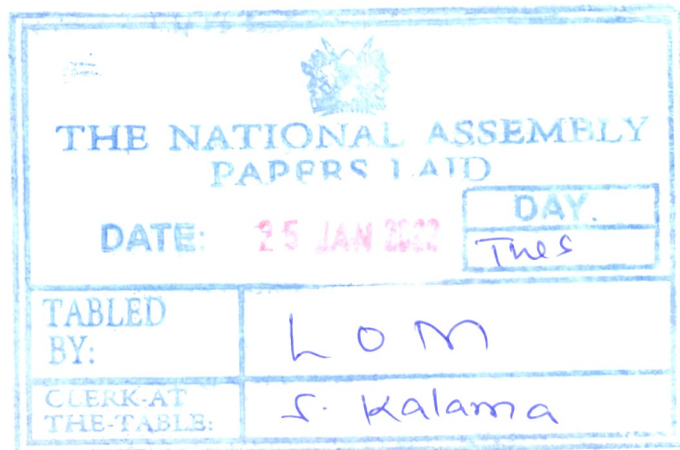 THE NATIONAL ASSEMBLY
PAPERS LAID
DATE: 25 JAN 2022
DAY.
Tues
TABLED
BY:
LOM
CLERK-AT
THE-TABLE:
S. Kalama